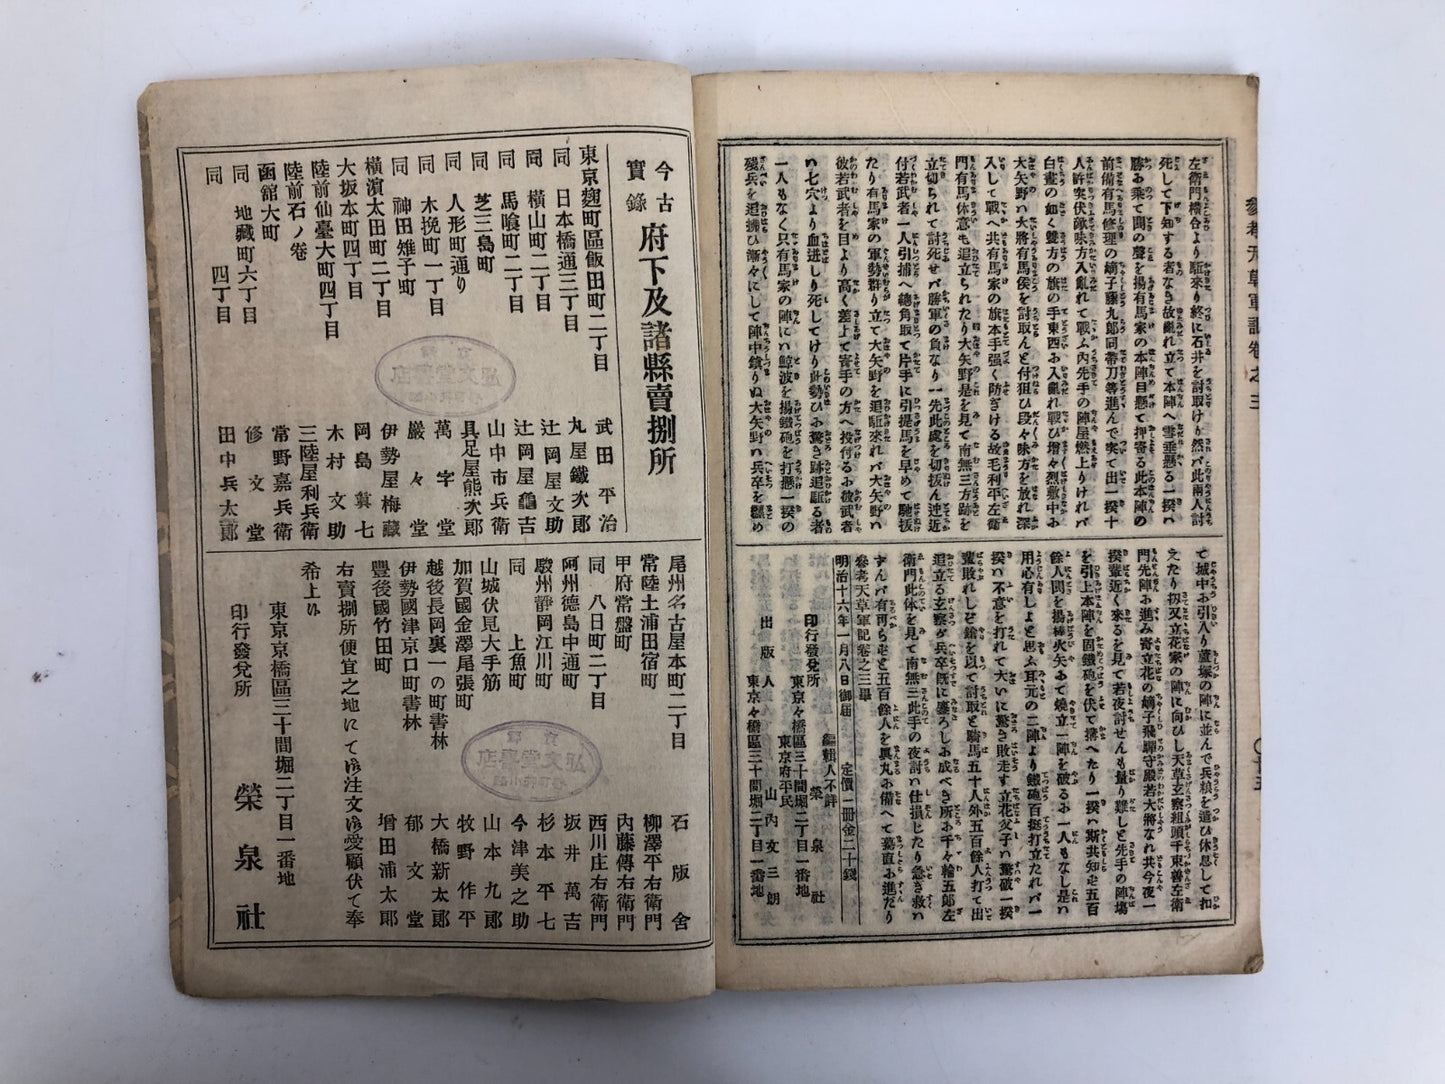 左衛門橋台より駈來り終に石井を討取けり然バ此兩人討
死して下知する者なき故亂れ立て本陣へ雪垂懸る一揆ハ
勝お乘て閧の聲を揚有馬家の本陣目懸て押寄る此本陣の
前備有馬修理の嫡子藤九郎同帶刀等進んで突て出一揆十
人許突伏敵味方入亂れて戰ふ内先手の陣屋燃上りけれバ
白晝の如く雙方の旗の手東西お入亂れ戰ひ増々烈敷中お
大矢野ハ大將有馬侯を討取んと付狙ひ段々味方を放れ深
入して戰へ共有馬家の旗本手强く防ぎける故毛利平左衛
門有馬休意も追立られたり大矢野是を見て南無三方跡を
立切られて討死せバ勝軍の負なり一先此處を切拔ん迚近
付若武者一人引捕へ總角取て片手に引提馬を早めて馳拔
たり有馬家の軍勢群り立て大矢野を追駈來れバ大矢野ハ
彼若武者を目より高く差上て寄手の方へ投付るお彼武者
ハ七穴より血迸しり死してけり此勢ひお驚き跡追駈る者
一人もなく只有馬家の陣にハ鯨波を揚鐵砲を打懸一揆の
殘兵を追拂ひ漸々にして陣中鎭りぬ大矢野ハ兵卒を纒め
て城中お引入り董塚の陣に並んで兵粮を遣ひ休息して扣
えたり扨又立花家の陣に向ひし天草玄察組頭千束善左衛
門先陣お進み寄立花の嫡子飛騨守殿若大將なれ共今夜一
揆輩近く來るを見て若夜討せんも量り難しと先手の陣塲
を引上本陣を固鐵砲を伏て搆へたり一揆ハ斯共知ず五百
餘人閧を揚棒火矢お て燒立一陣を破るお一人もなし是ハ
用心有しよと思ふ耳元の二陣より鐵砲百挺打立たれバ一
揆ハ不意を打れて大いに驚き敗走す立花父子ハ驀破一揆
輩敗れしぞ鎗を以て討取と騎馬五十人外五百餘人打て出
追立る玄察ガ兵卒既に塵ろしお成べき所お千々輪五郎左
衛門此体を見て南無三此手の夜討ハ仕損じたり急ぎ救ハ
ずんバ有可らずと五百餘人を眞丸お備へて驀直お進だり
參考天草軍記卷之三畢
明治十六年一月八日御屆　定價一冊金二十錢
編輯人不詳
印行發兌所　榮泉社
東京々橋區三十間堀二丁目一番地
東京府平民
出版人　山内文三朗
東京々橋區三十間堀二丁目一番地
今古實錄　府下及諸縣賣捌所
東京麹町區飯田町二丁目　武田平治
同　日本橋通三丁目　丸屋鐵次郎
同　横山町二丁目　辻岡屋文助
同　馬喰町二丁目　辻岡屋龜吉
同　芝三島町　山中市兵衛
同　人形町通り　具足屋熊次郎
同　木挽町一丁目　萬字堂
同　神田雉子町　嚴々堂
横濱太田町二丁目　伊勢屋梅藏
大坂本町四丁目　岡島眞七
陸前仙臺大町四丁目　木村文助
陸前石ノ卷　三陸屋利兵衛
函館大町　常野嘉兵衛
同　地藏町六丁目　修文堂
同　四丁目　田中兵太郎
尾州名古屋本町二丁目　石版舍
常陸土浦田宿町　柳澤平右衛門
甲府常盤町　内藤傳右衛門
同　八日町二丁目　西川庄右衛門
阿州德島中通町　坂井萬吉
駿州靜岡江川町　杉本平七
同　上魚町　今津美之助
山城伏見大手筋　山本九郎
加賀國金澤尾張町　牧野作平
越後長岡裏一の町書林　大橋新太郎
伊勢國津京口町書林　郁文堂
豐後國竹田町　増田浦太郎
右賣捌所便宜之地にて御注文御愛顧伏て奉
希上候
東京京橋區三十間堀二丁目一番地
印行發兌所　榮泉社